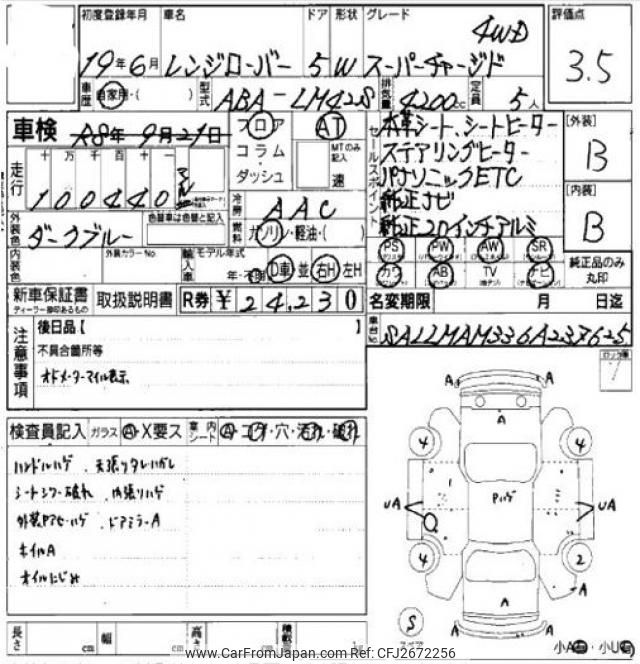 初度登録年月 車名 ドア 形状 グレード 評価点
19年6月 レンジローバー 5 W スーパーチャージド 4WD 3.5
車歴 自家用・( ) 型式 ABA-LM42S 排気量 4200cc 定員 5人
車検 R8年9月21日 フロア AT
コラム・ MTのみ記入
ダッシュ 速
セールスポイント 本革シート、シートヒーター
ステアリングヒーター
パナソニックETC
純正ナビ
純正20インチアルミ
[外装] B
[内装] B
走行 十 万 千 百 十 一
100440 マイル
冷房 AAC
外装色 ダークブルー 色替車は色替と記入
燃料 ガソリン・軽油・( )
内装色 外装カラーNo. 輸入車 モデル年式
年・不明 D車 並 右H 左H
PS PW AW SR
カワ AB TV ナビ
純正品のみ丸印
新車保証書 取扱説明書 R券 ¥24,230
ディーラー捺印あるもの
名変期限 月 日迄
車台No. SALLMAM336A237625
注意事項 後日品【 】
不具合箇所等
オドメーターマイル表示
検査員記入 ガラス A・X要ス 室内シート A・コゲ・穴・汚れ・破れ
ハンドルハゲ 天張りタレハガレ
シートシワ・破れ 内張りハゲ
外装Pアセ・ハゲ ドアミラーA
ホイルA
オイルにじみ
A A
A
4 4
UA Pハゲ UA
4 2
A A
A
S A A
長さ cm 幅 cm 高さ cm 積載
小A 小U
www.CarFromJapan.com Ref: CFJ2672256